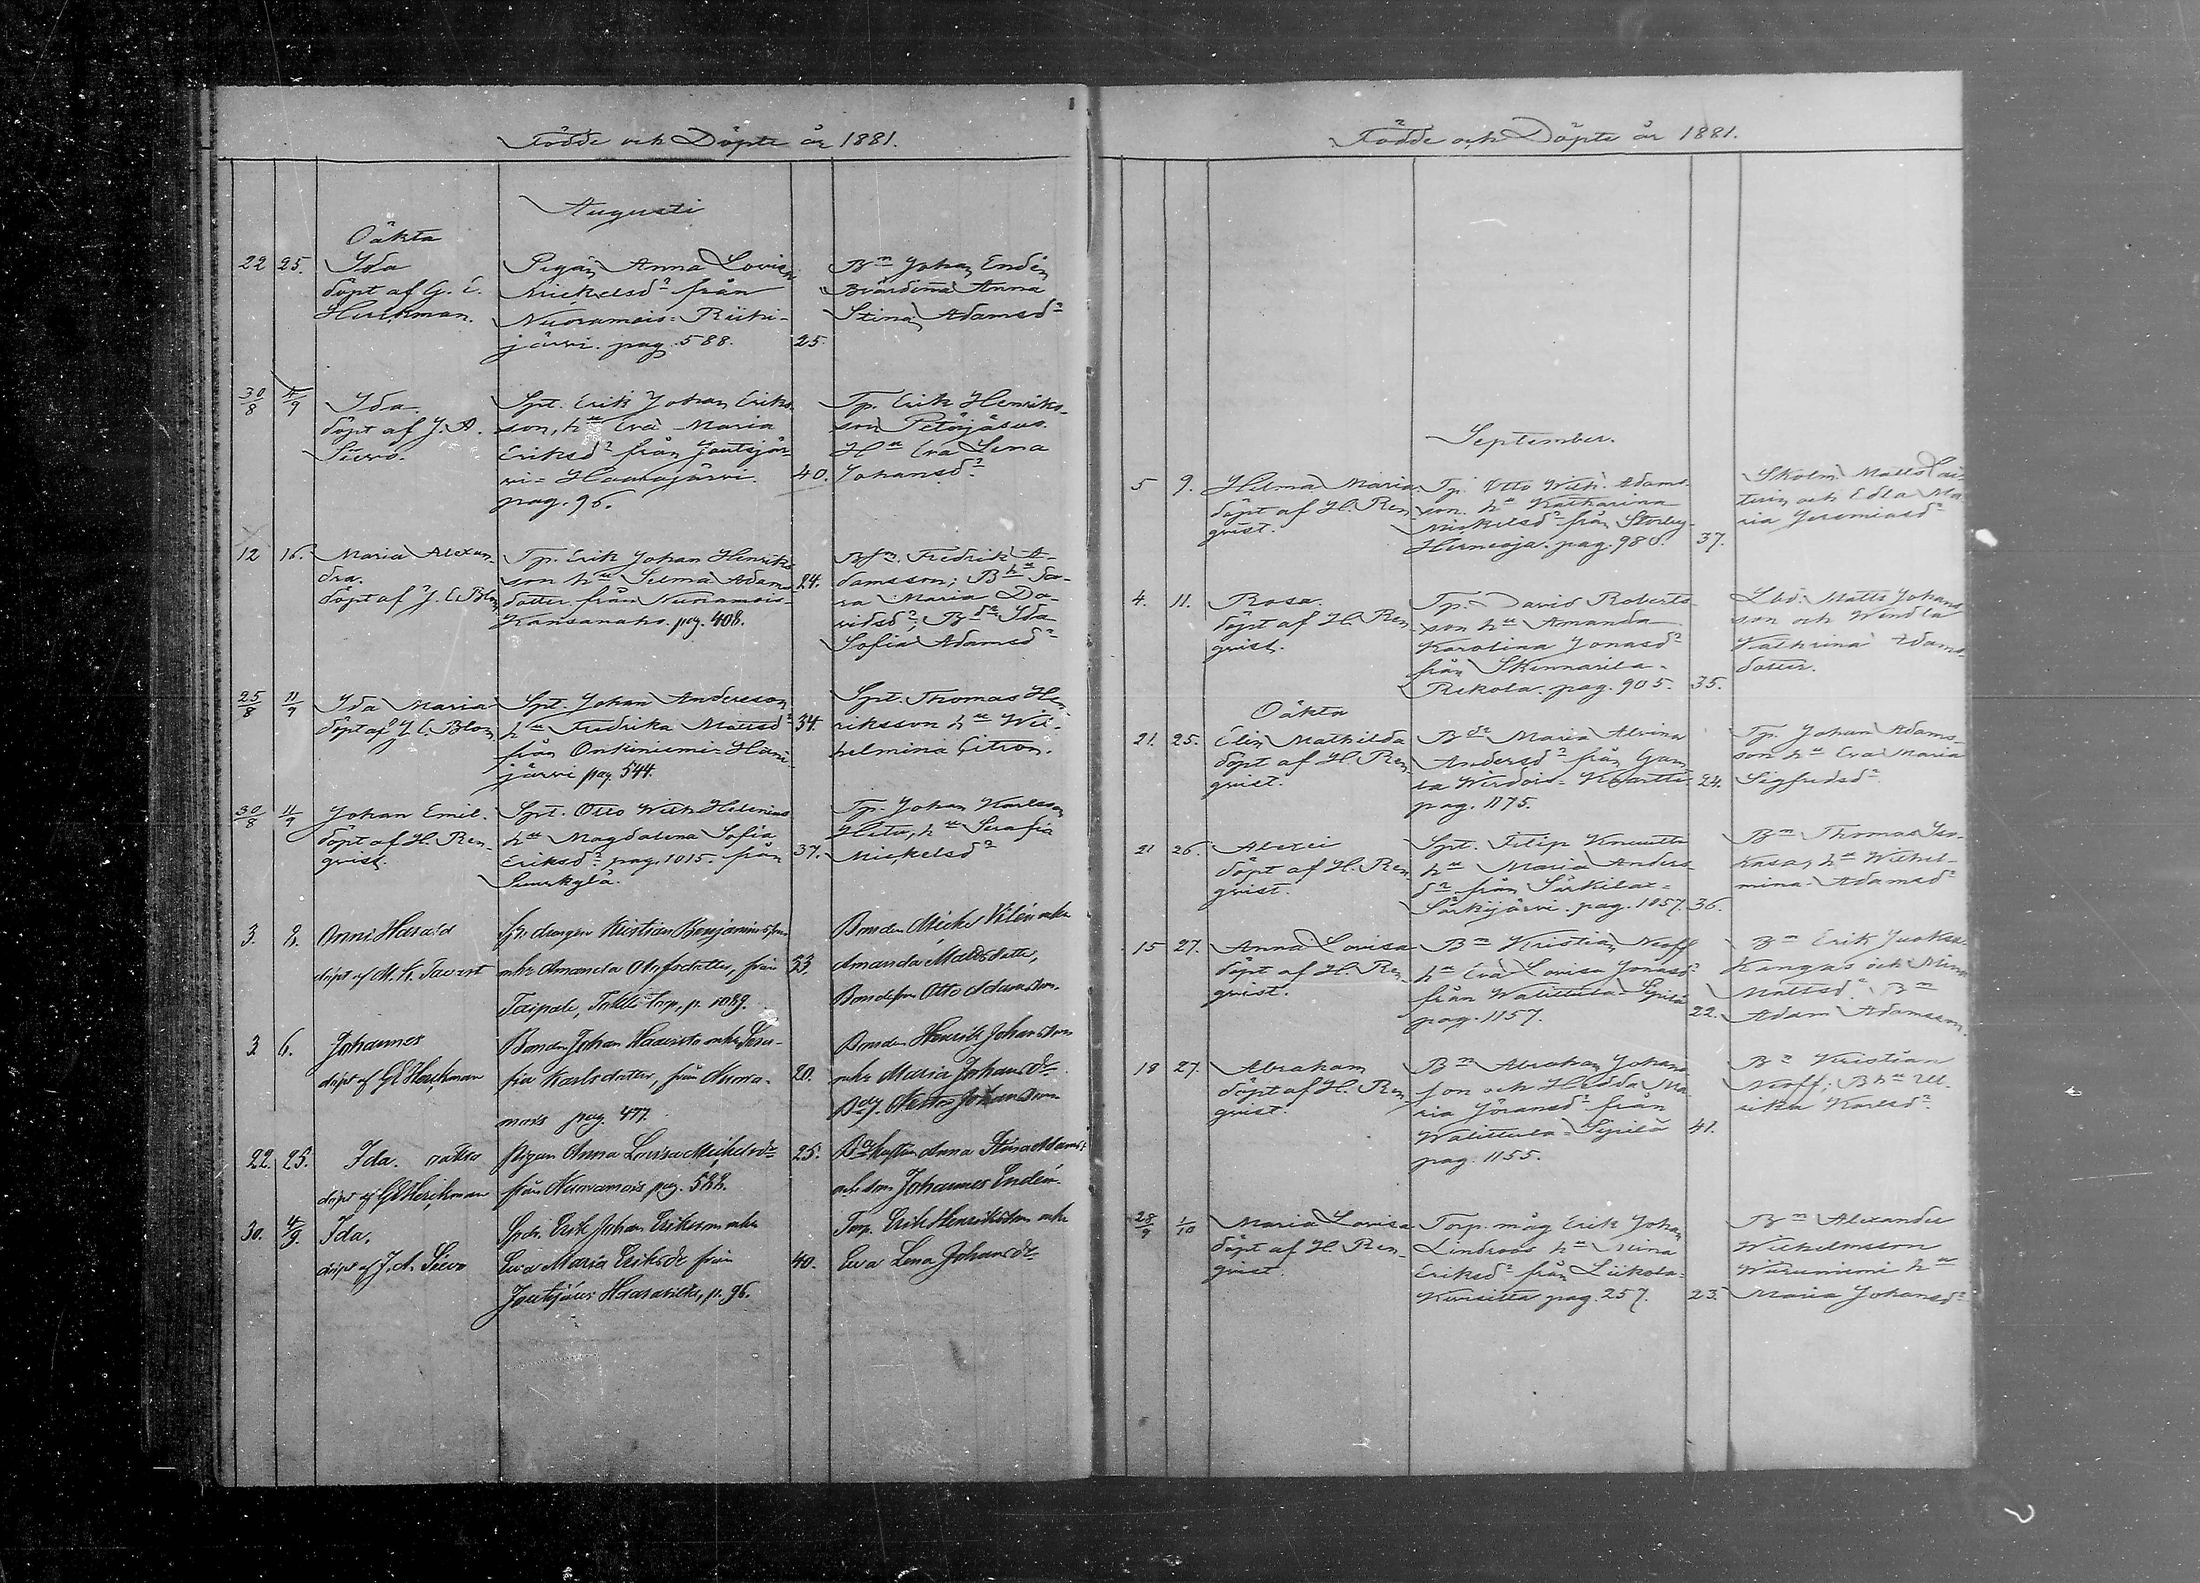 Födde och Döpte år 1881.
Augusti
Oäkta
22 25. Ida
döpt af G. E.
Hirckman.
Pigan Anna Lovisa
Mickelsdr från
Nuoramois-Riihi-
järvi. pag. 588. 25.
Bn Johan Endén
Stina Adamsdr
30/8 4/9 Ida.
döpt af J. A.
Sievo.
Spt. Erik Johan Eriks-
son, hu Eva Maria
Eriksdr från Joutsjär-
vi = Haarajärvi. 40.
pag. 96.
Tp. Erik Henriks-
son Petäjäsuo.
Hu Eva Lena
Johansdr
12 16. Maria Alexan-
dra.
döpt af J. E. Blom
Tp. Erik Johan Henriks-
son hu Selma Adams- 24.
dotter från Nuoramois-
Kansanaho. pag. 408.
Fredrik A-
damsson; Bhu Sa-
ra Maria Da-
vidsdr; Bdr Ida
Sofia Adamsdr
25/8 11/9 Ida Maria
döpt af J. E. Blom
Spt. Johan Andersson
hu Fredrika Mattsdr 34.
från Onkiniemi-Hani-
järvi pag. 544.
Spt. Thomas Hen-
riksson hu Wil-
helmina Citron.
30/8 11/9 Johan Emil.
döpt af H. Ren-
qvist.
Spt. Otto Wilh. Helenius
hu Magdalena Sofia
Eriksdr pag. 1015. från 37.
Suurkylä.
Tp. Johan Karlsson
hu Serafia
Mickelsdr
3. 8. Onni Harald
döpt af M. K. Tavast
Kristian Benjaminsson
och Amanda Olofsdotter, från 23.
Taipale, torp, p. 1089.
Bonden Mickel Vilén och
Amanda Mattsdotter,
Bondeson Otto Adamsson.
3 6. Johannes
döpt af G E Hirckman
Bonden Johan Haavisto och Sera-
fia Karlsdotter, från Nuora- 20.
mois pag. 477.
Bonden Henrik Johansson
och Maria Johansdr
Johansson
22. 25. Ida. oäkta
döpt af G E Hirckman
Pigan Anna Lovisa Mickelsdr 25.
från Nuoramois, pag. 588.
Anna Stina Adamsd:
och Johannes Endén.
30. 4/9. Ida.
döpt af J. A. Sievo
Spdr. Erik Johan Eriksson och
Eva Maria Eriksdr från 40.
Joutsjärvi Haarasilta, p. 96.
Torp. Erik Henriksson och
Eva Lena Johansdr
Födde och Döpte år 1881.
September.
5 9. Hilma Maria
döpt af H. Ren-
qvist.
Tp. Otto Wilh. Adams-
son. hu Katharina
Mickelsdr från Storby-
Hirneoja. pag. 980. 37.
Skolm. Matts Lai-
tinen och Edla Ma-
ria Jeremiasdr
4. 11. Rosa.
döpt af H. Ren-
qvist.
Tp. David Roberts-
son hu Amanda
Karolina Jonasdr
från Skinnarila-
Rekola. pag. 905. 35.
Lbd. Matts Johans-
son och Wendla
Kathrina Adams-
dotter.
Oäkta
21. 25. Elin Mathilda
döpt af H. Ren-
qvist.
Bdr Maria Alvina
Andersdr från Gam-
la Wirdois-Kvartti. 24.
pag. 1175.
Tp. Johan Adams-
son hu Eva Maria
Sigfridsdr
21 26. Alexei
döpt af H. Ren-
qvist.
Spt. Filip Knuutti
hu Maria Anders-
dr från Särkilax-
Särkijärvi. pag. 1057. 36.
Bn Thomas Iso-
Kasa, hu Wilhel-
mina Adamsdr
15 27. Anna Lovisa
döpt af H. Ren-
qvist.
Bn Kristian Neoff
hu Eva Lovisa Jonasdr
från Walittula-Sipilä
pag. 1157. 22.
Bn Erik Juoksu-
Kangas och Mina
Mattsdr. Bn
Adam Adamsson.
18 27. Abraham
döpt af H. Ren-
qvist.
Bn Abraham Johans-
son och Hedda Ma-
ria Göransdr från
Walittula-Sipilä 41.
pag. 1155.
Bn Kristian
Neoff; Bhu Ul-
rika Karlsdr.
28/9 1/10 Maria Lovisa
döpt af H. Ren-
qvist.
Torp. måg Erik Johan
Lindroos hu Mina
Eriksdr från Liikola-
Kivisilta pag. 257. 23.
Bn Alexander
Wilhelmsson
Wuriniemi hu
Maria Johansdr